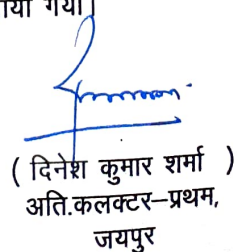 गया।
( दिनेश कुमार शर्मा )
अति.कलक्टर–प्रथम,
जयपुर